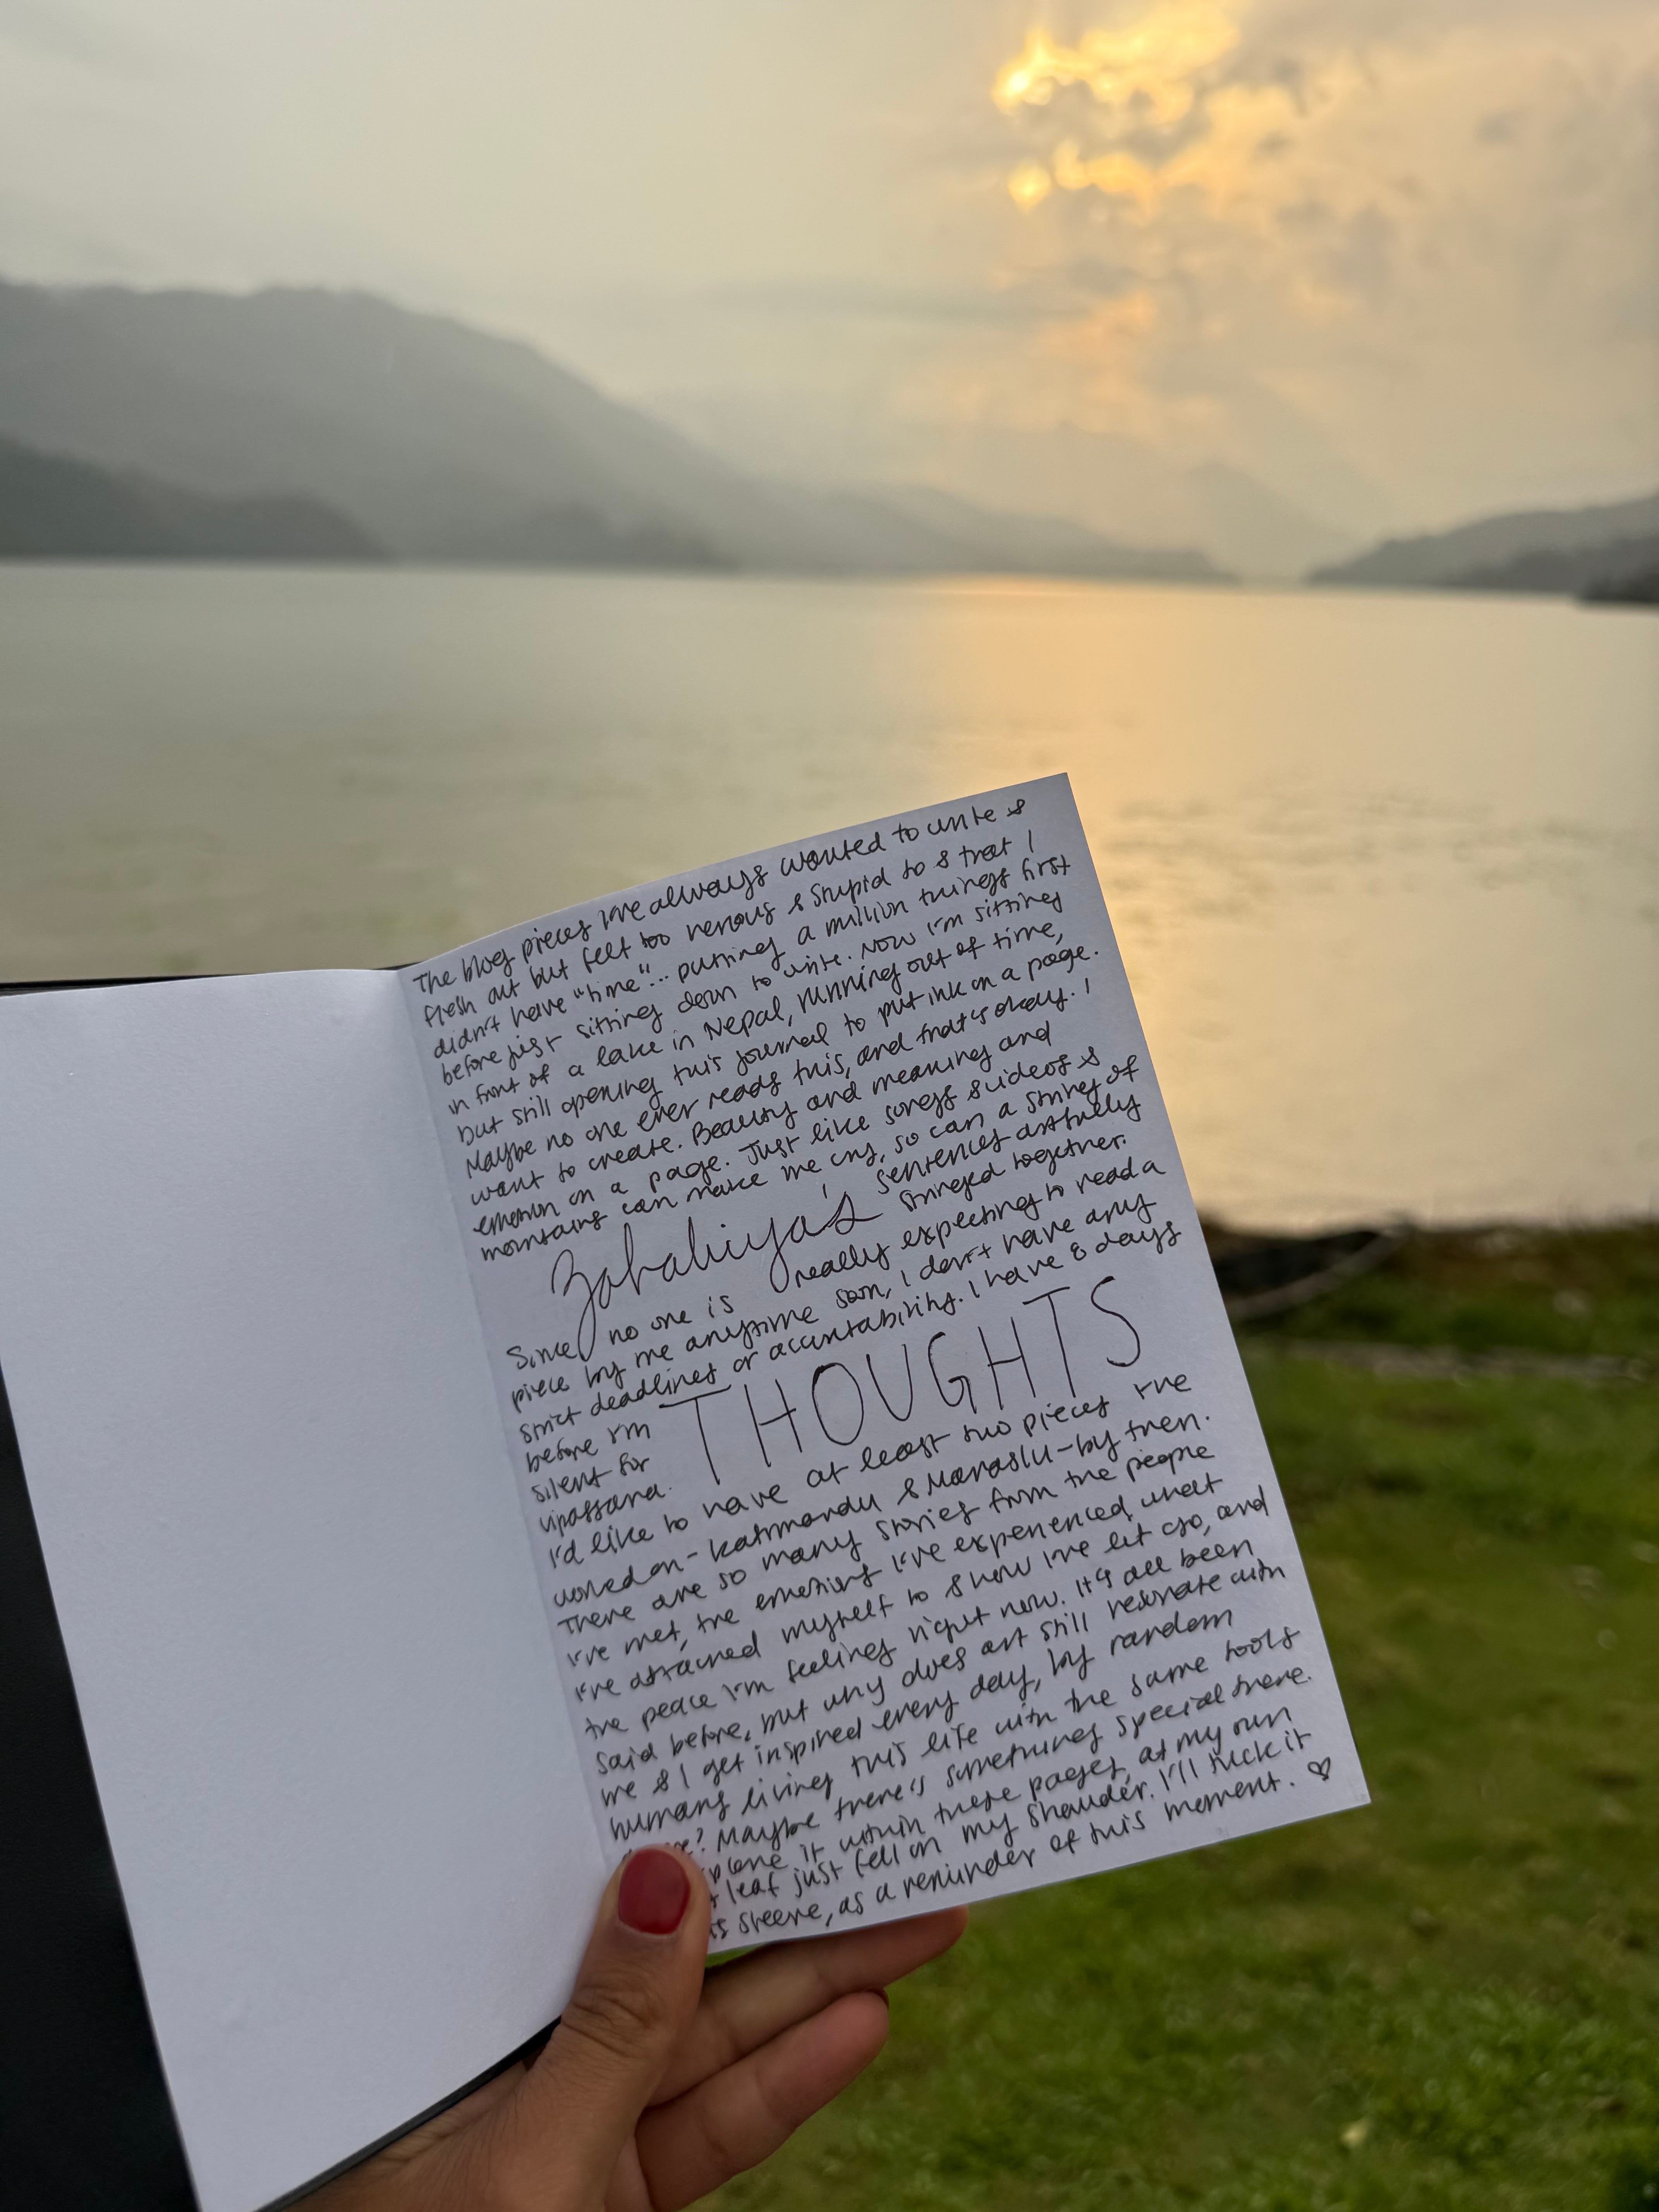 The blog pieces I've always wanted to write &
flesh out but felt too nervous & stupid to & that I
didn't have "time"... putting a million things first
before just sitting down to write. Now I'm sitting
in front of a lake in Nepal, running out of time,
but still opening this journal to put ink on a page.
Maybe no one ever reads this, and that's okay. I
want to create. Beauty and meaning and
emotion on a page. Just like songs & videos &
mountains can make me cry, so can a string of
sentences artfully
stringed together.
Zabahiya's
Since no one is really expecting to read a
piece by me anytime soon, I don't have any
strict deadlines or accountability. I have 8 days
before I'm
silent for
vipassana.
THOUGHTS
I'd like to have at least two pieces I've
worked on - Katmandu & Manaslu - by then.
There are so many stories from the people
I've met, the emotions I've experienced, what
I've attached myself to & how I've let go, and
the peace I'm feeling right now. It's all been
said before, but why does art still resonate with
me & I get inspired every day, by random
humans living this life with the same tools
? Maybe there's something special there.
it within these pages, at my own
leaf just fell on my shoulder. I'll tuck it
sleeve, as a reminder of this moment. ♡